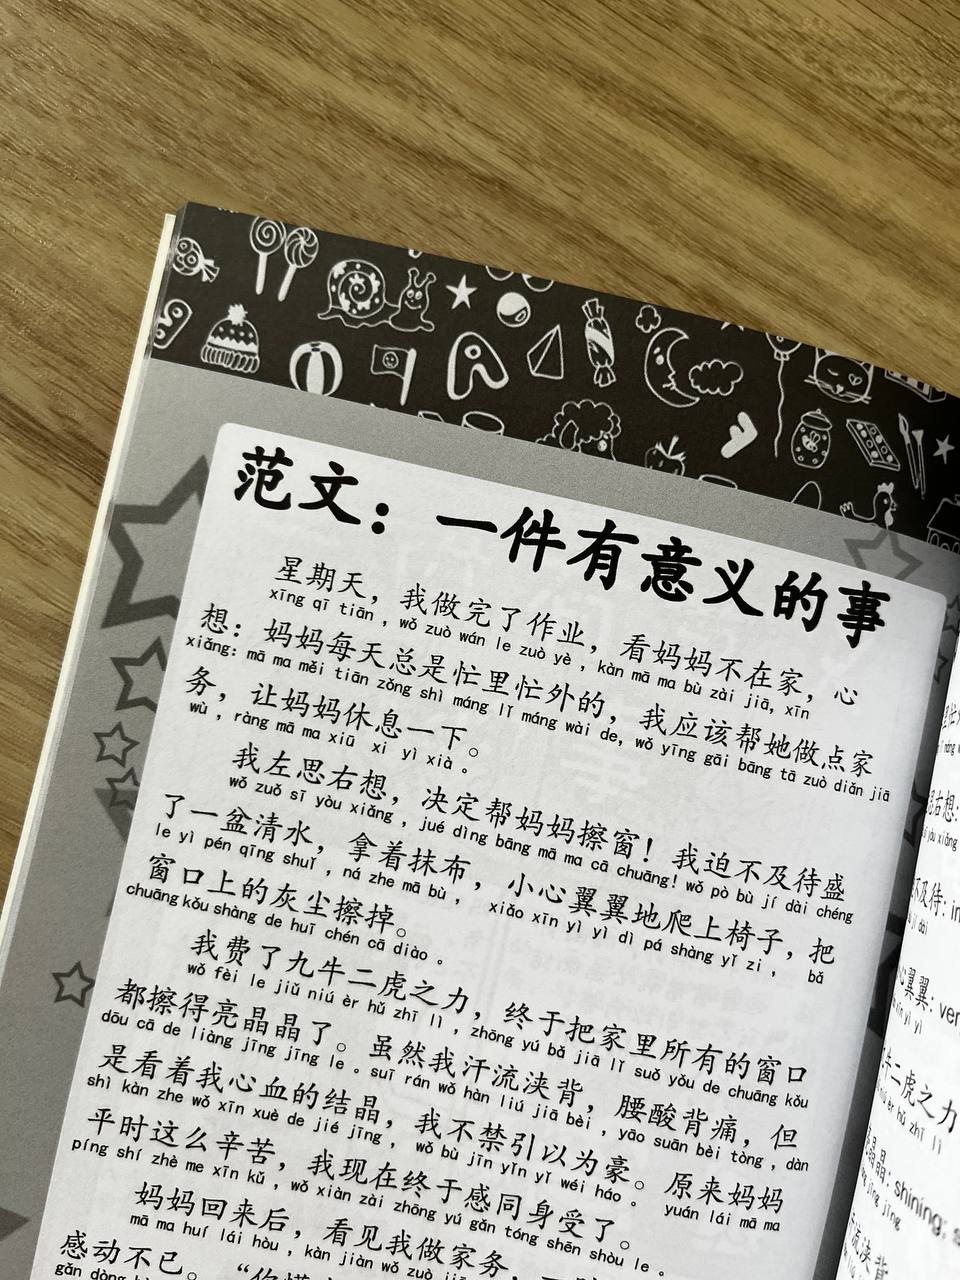 范文：一件有意义的事
星期天，我做完了作业，看妈妈不在家，心
xīng qī tiān , wǒ zuò wán le zuò yè , kàn mā ma bù zài jiā, xīn
想：妈妈每天总是忙里忙外的，我应该帮她做点家
xiǎng: mā ma měi tiān zǒng shì máng lǐ máng wài de, wǒ yīng gāi bāng tā zuò diǎn jiā
务，让妈妈休息一下。
wù , ràng mā ma xiū xi yì xià 。
我左思右想，决定帮妈妈擦窗！我迫不及待盛
wǒ zuǒ sī yòu xiǎng , jué dìng bāng mā ma cā chuāng! wǒ pò bù jí dài chéng
了一盆清水，拿着抹布，小心翼翼地爬上椅子，把
le yì pén qīng shuǐ , ná zhe mā bù , xiǎo xīn yì yì dì pá shàng yǐ zi , bǎ
窗口上的灰尘擦掉。
chuāng kǒu shàng de huī chén cā diào 。
我费了九牛二虎之力，终于把家里所有的窗口
wǒ fèi le jiǔ niú èr hǔ zhī lì , zhōng yú bǎ jiā lǐ suǒ yǒu de chuāng kǒu
都擦得亮晶晶了。虽然我汗流浃背，腰酸背痛，但
dōu cā de liàng jīng jīng le 。suī rán wǒ hàn liú jiā bèi , yāo suān bèi tòng , dàn
是看着我心血的结晶，我不禁引以为豪。原来妈妈
shì kàn zhe wǒ xīn xuè de jié jīng , wǒ bù jīn yǐn yǐ wéi háo 。 yuán lái mā ma
平时这么辛苦，我现在终于感同身受了。
píng shí zhè me xīn kǔ , wǒ xiàn zài zhōng yú gǎn tóng shēn shòu le 。
妈妈回来后，看见我做家务，
mā ma huí lái hòu , kàn jiàn wǒ zuò jiā
感动不已。“你懂
gǎn dòng
里忙
思右想：
sī yòu xiǎng
不及待: in
jí dài
心翼翼: ver
xīn yì yì
牛二虎之力
niú èr hǔ zhī lì
晶晶: shining;
jīng jīng
流浃背